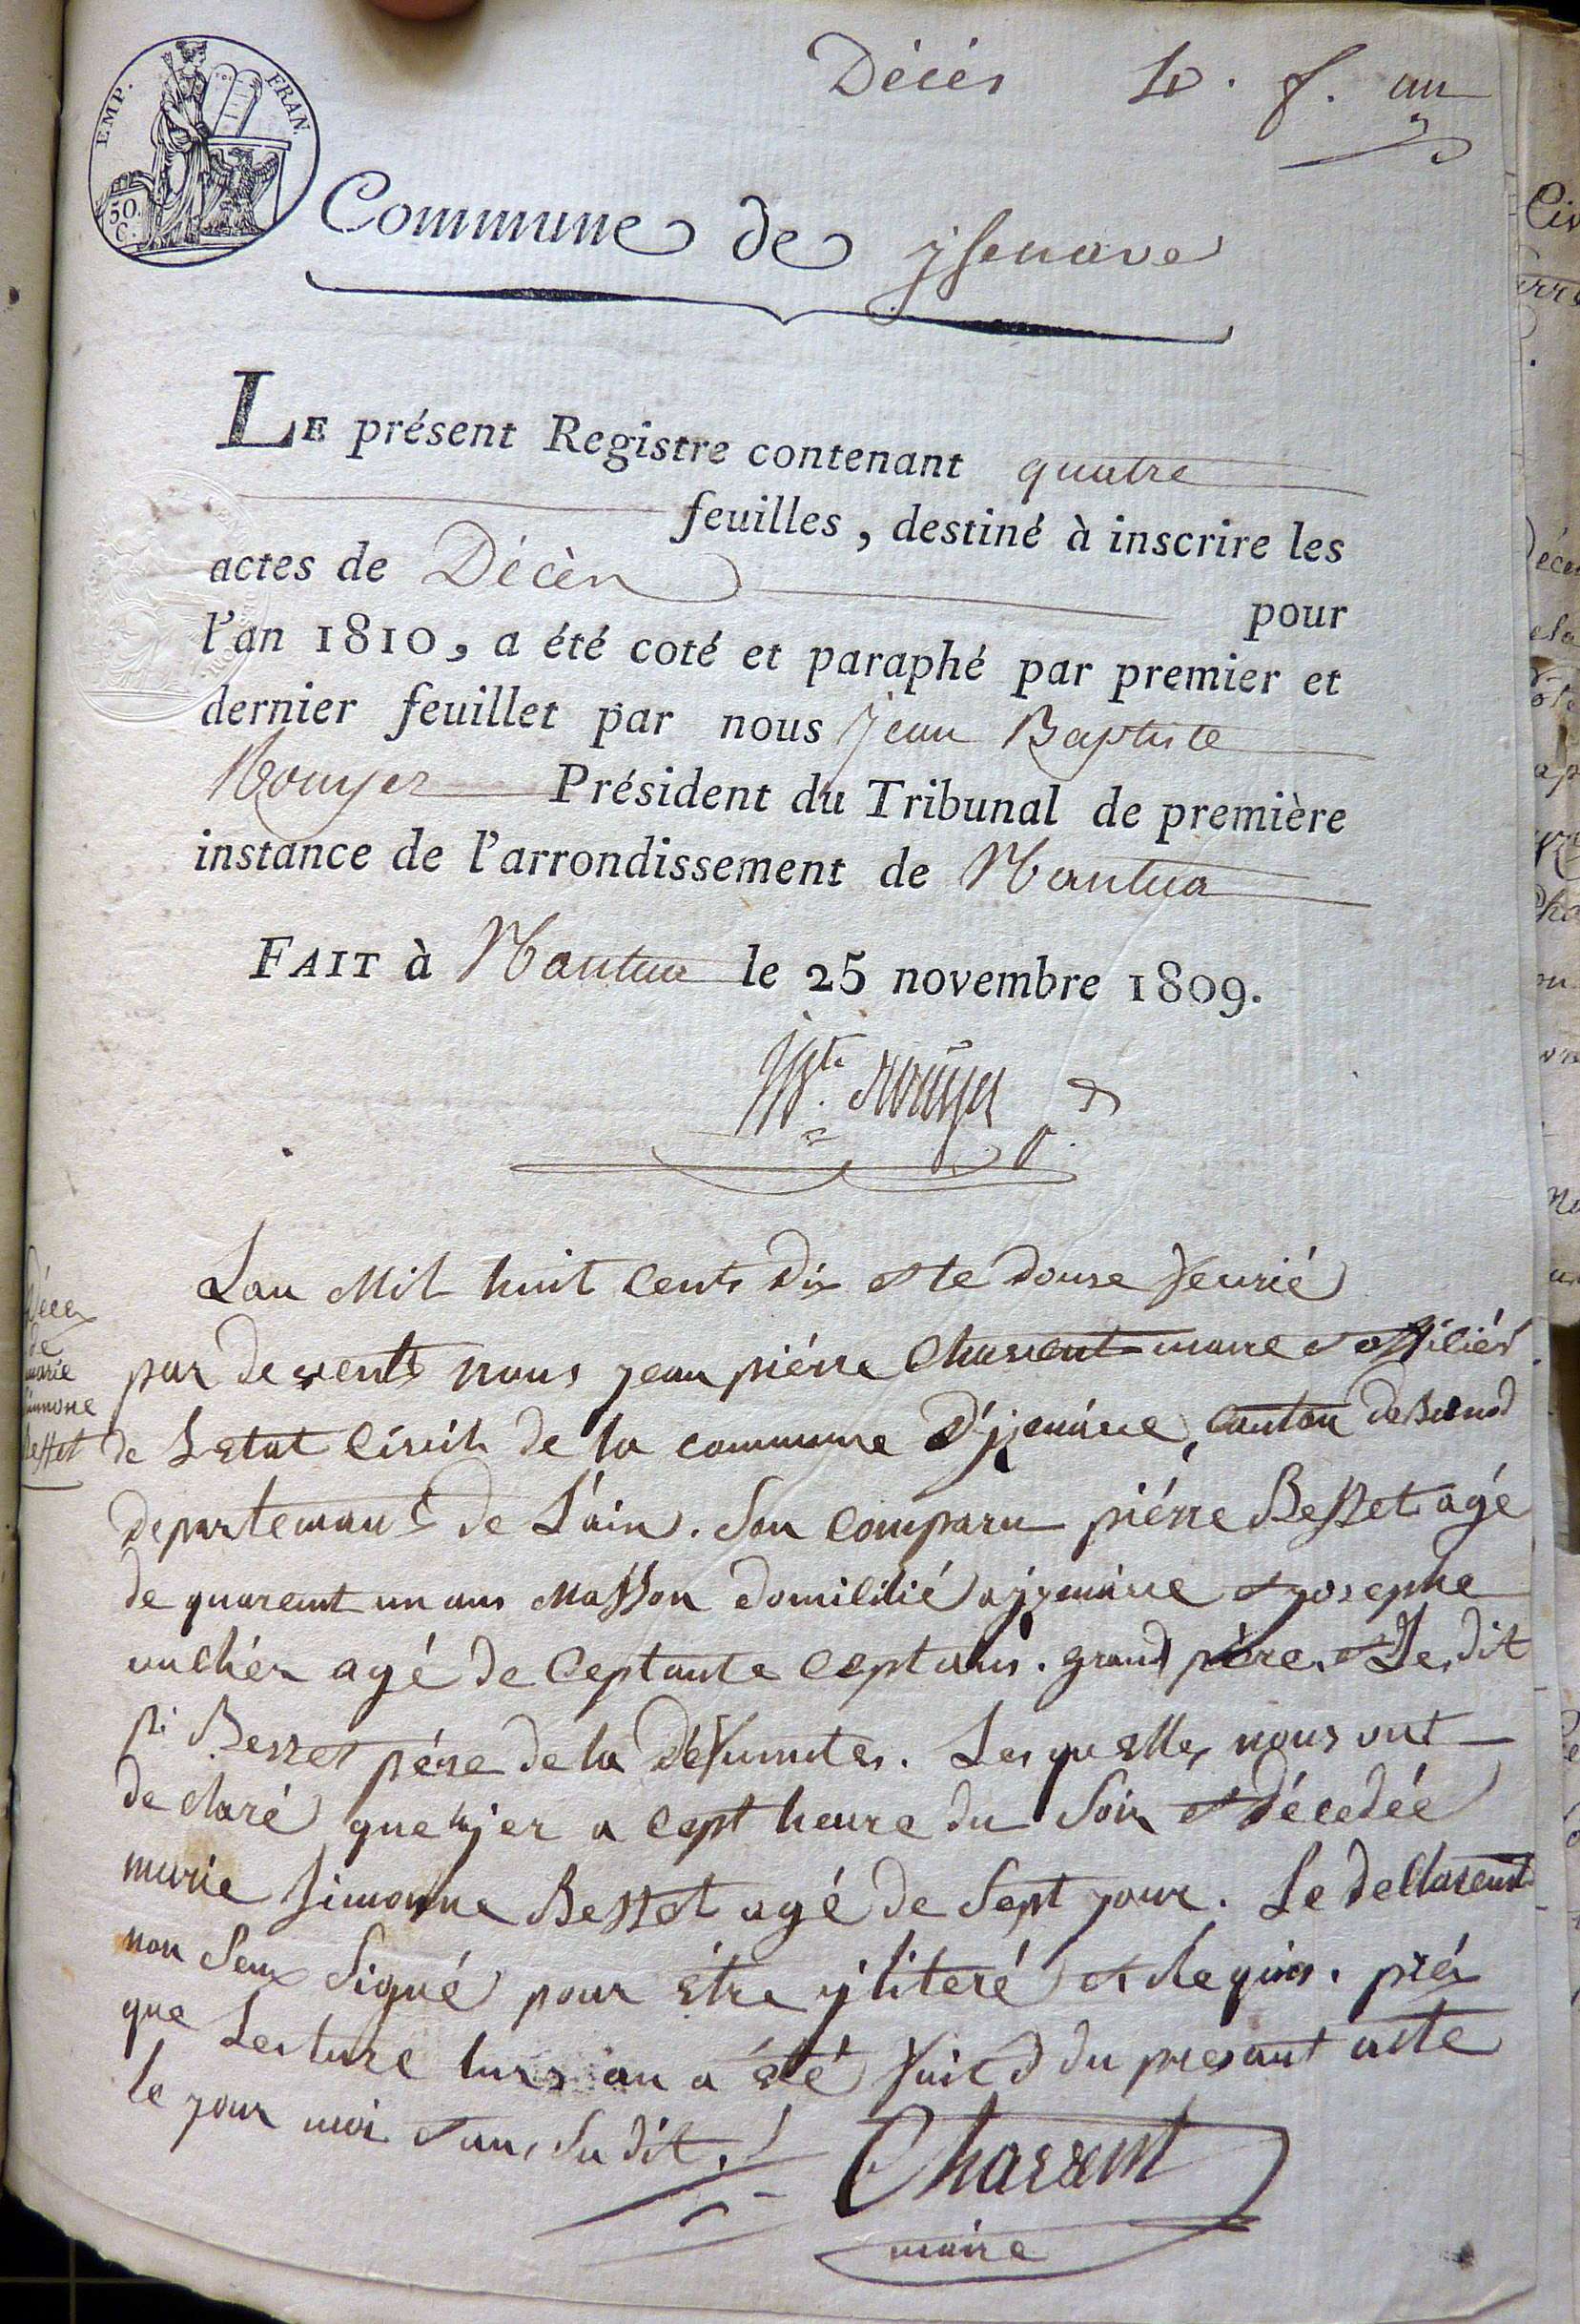 Décès 4. f. un
EMP. FRAN.
50.
C.
Commune de ysenave
LE présent Registre contenant quatre
feuilles, destiné à inscrire les
actes de Décès
pour
l'an 1810, a été coté et paraphé par premier et
dernier feuillet par nous jean Baptiste
Rouyer Président du Tribunal de première
instance de l'arrondissement de Nantua
FAIT à Nantua le 25 novembre 1809.
JBte Rouyer
Lan Mil huit Cents Dix et le douse feurié
par devents nous jean piérre Chassent maire et offiliér
de Letat Civil de la commune D'jzenáve, Canton de Brenod
departemant de L'ain. Son Comparu piérre Besset agé
de quareint un ans Masson domilitié a jzenáve et josephe
anchér agé de Ceptante Cept ans. grand pére. et Le dit
pi Besset pére de la défunte. Les quelle nous ont
declaré que hjer a Cept heure du Soir et décedée
marie Simonne Besset agé de Sept jour. Le declarent
non Seux Signé pour étre jliteré et Requis. prés
que Lecture lurs an a été fait du presant acte
le jour moi et an, Su dit.
Chassent
maire
Décex
de
marie
Simmone
Besset